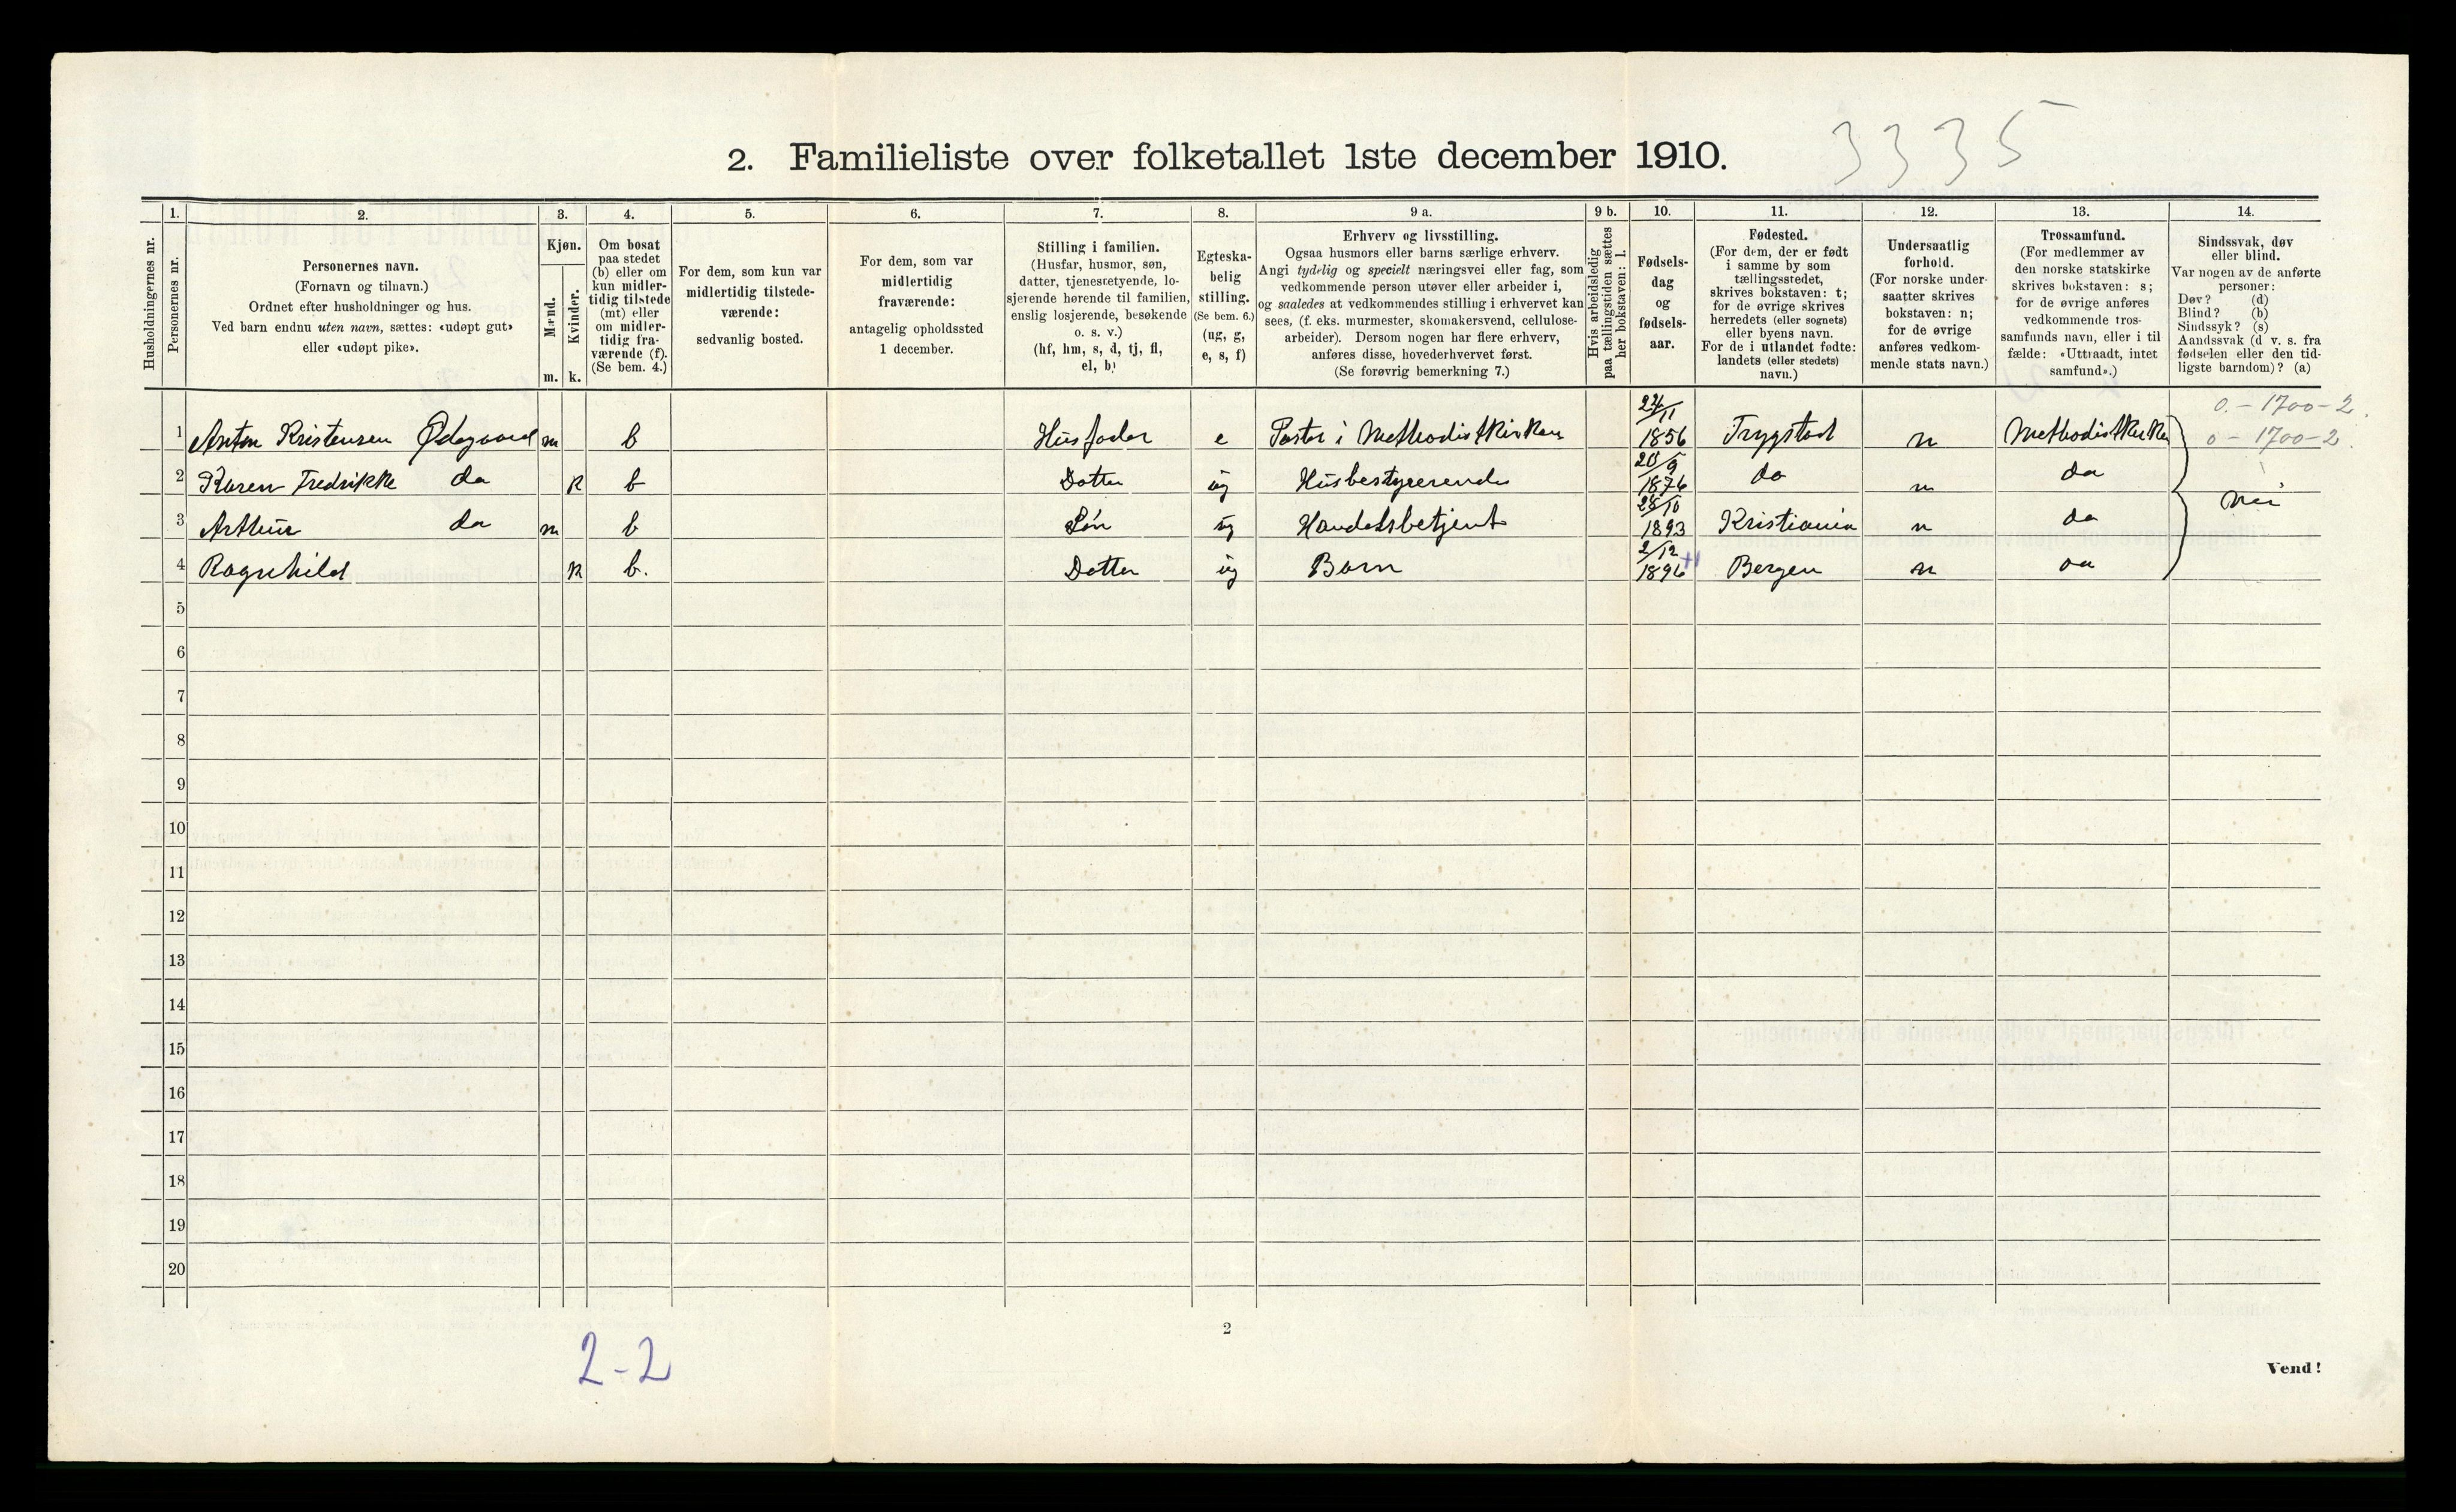 3335
2. Familieliste over folketallet 1ste december 1910.
Husholdningernes nr.
1.
Personernes nr.
2.
Personernes navn.
(Fornavn og tilnavn.)
Ordnet efter husholdninger og hus.
Ved barn endnu uten navn, sættes: «udøpt gut»
eller «udøpt pike».
3.
Kjøn.
Mænd.
m.
Kvinder.
k.
4.
Om bosat
paa stedet
(b) eller om
kun midler-
tidig tilstede
(mt) eller
om midler-
tidig fra-
værende (f).
(Se bem. 4.)
5.
For dem, som kun var
midlertidig tilstede-
værende:
sedvanlig bosted.
6.
For dem, som var
midlertidig
fraværende:
antagelig opholdssted
1 december.
7.
Stilling i familien.
(Husfar, husmor, søn,
datter, tjenestetyende, lo-
sjerende hørende til familien,
enslig losjerende, besøkende
o. s. v.)
(hf, hm, s, d, tj, fl,
el, b)
8.
Egteska-
belig
stilling.
(Se bem. 6.)
(ug, g,
e, s, f)
9 a.
Erhverv og livsstilling.
Ogsaa husmors eller barns særlige erhverv.
Angi tydelig og specielt næringsvei eller fag, som
vedkommende person utøver eller arbeider i,
og saaledes at vedkommendes stilling i erhvervet kan
sees, (f. eks. murmester, skomakersvend, cellulose-
arbeider). Dersom nogen har flere erhverv,
anføres disse, hovederhvervet først.
(Se forøvrig bemerkning 7.)
9 b.
Hvis arbeidsledig
paa tællingstiden sættes
her bokstaven: l.
10.
Fødsels-
dag
og
fødsels-
aar.
11.
Fødested.
(For dem, der er født
i samme by som
tællingsstedet,
skrives bokstaven: t;
for de øvrige skrives
herredets (eller sognets)
eller byens navn.
For de i utlandet fødte:
landets (eller stedets)
navn.)
12.
Undersaatlig
forhold.
(For norske under-
saatter skrives
bokstaven: n;
for de øvrige
anføres vedkom-
mende stats navn.)
13.
Trossamfund.
(For medlemmer av
den norske statskirke
skrives bokstaven: s;
for de øvrige anføres
vedkommende tros-
samfunds navn, eller i til
fælde: «Uttraadt, intet
samfund».)
14.
Sindssvak, døv
eller blind.
Var nogen av de anførte
personer:
Døv? (d)
Blind? (b)
Sindssyk? (s)
Aandssvak (d v. s. fra
fødselen eller den tid-
ligste barndom)? (a)
0. - 1700 - 2.
1 Anton Kristensen Ødegaard m b Husfader e Pastor i Methodistkirken 22/11 1856 Trygstad n Methodistkirken 0 - 1700 - 2.
2 Karen Fredrikke do k b Dotter ug Husbestyrerende 20/9 1876 do n do
3 Arthur do m b Søn ug Handelsbetjent 28/10 1893 Kristiania n do nei
4 Ragnhild k b. Dotter ug Barn 2/12 1896 Bergen n do
5
6
7
8
9
10
11
12
13
14
15
16
17
18
19
20
2
2-2
Vend!